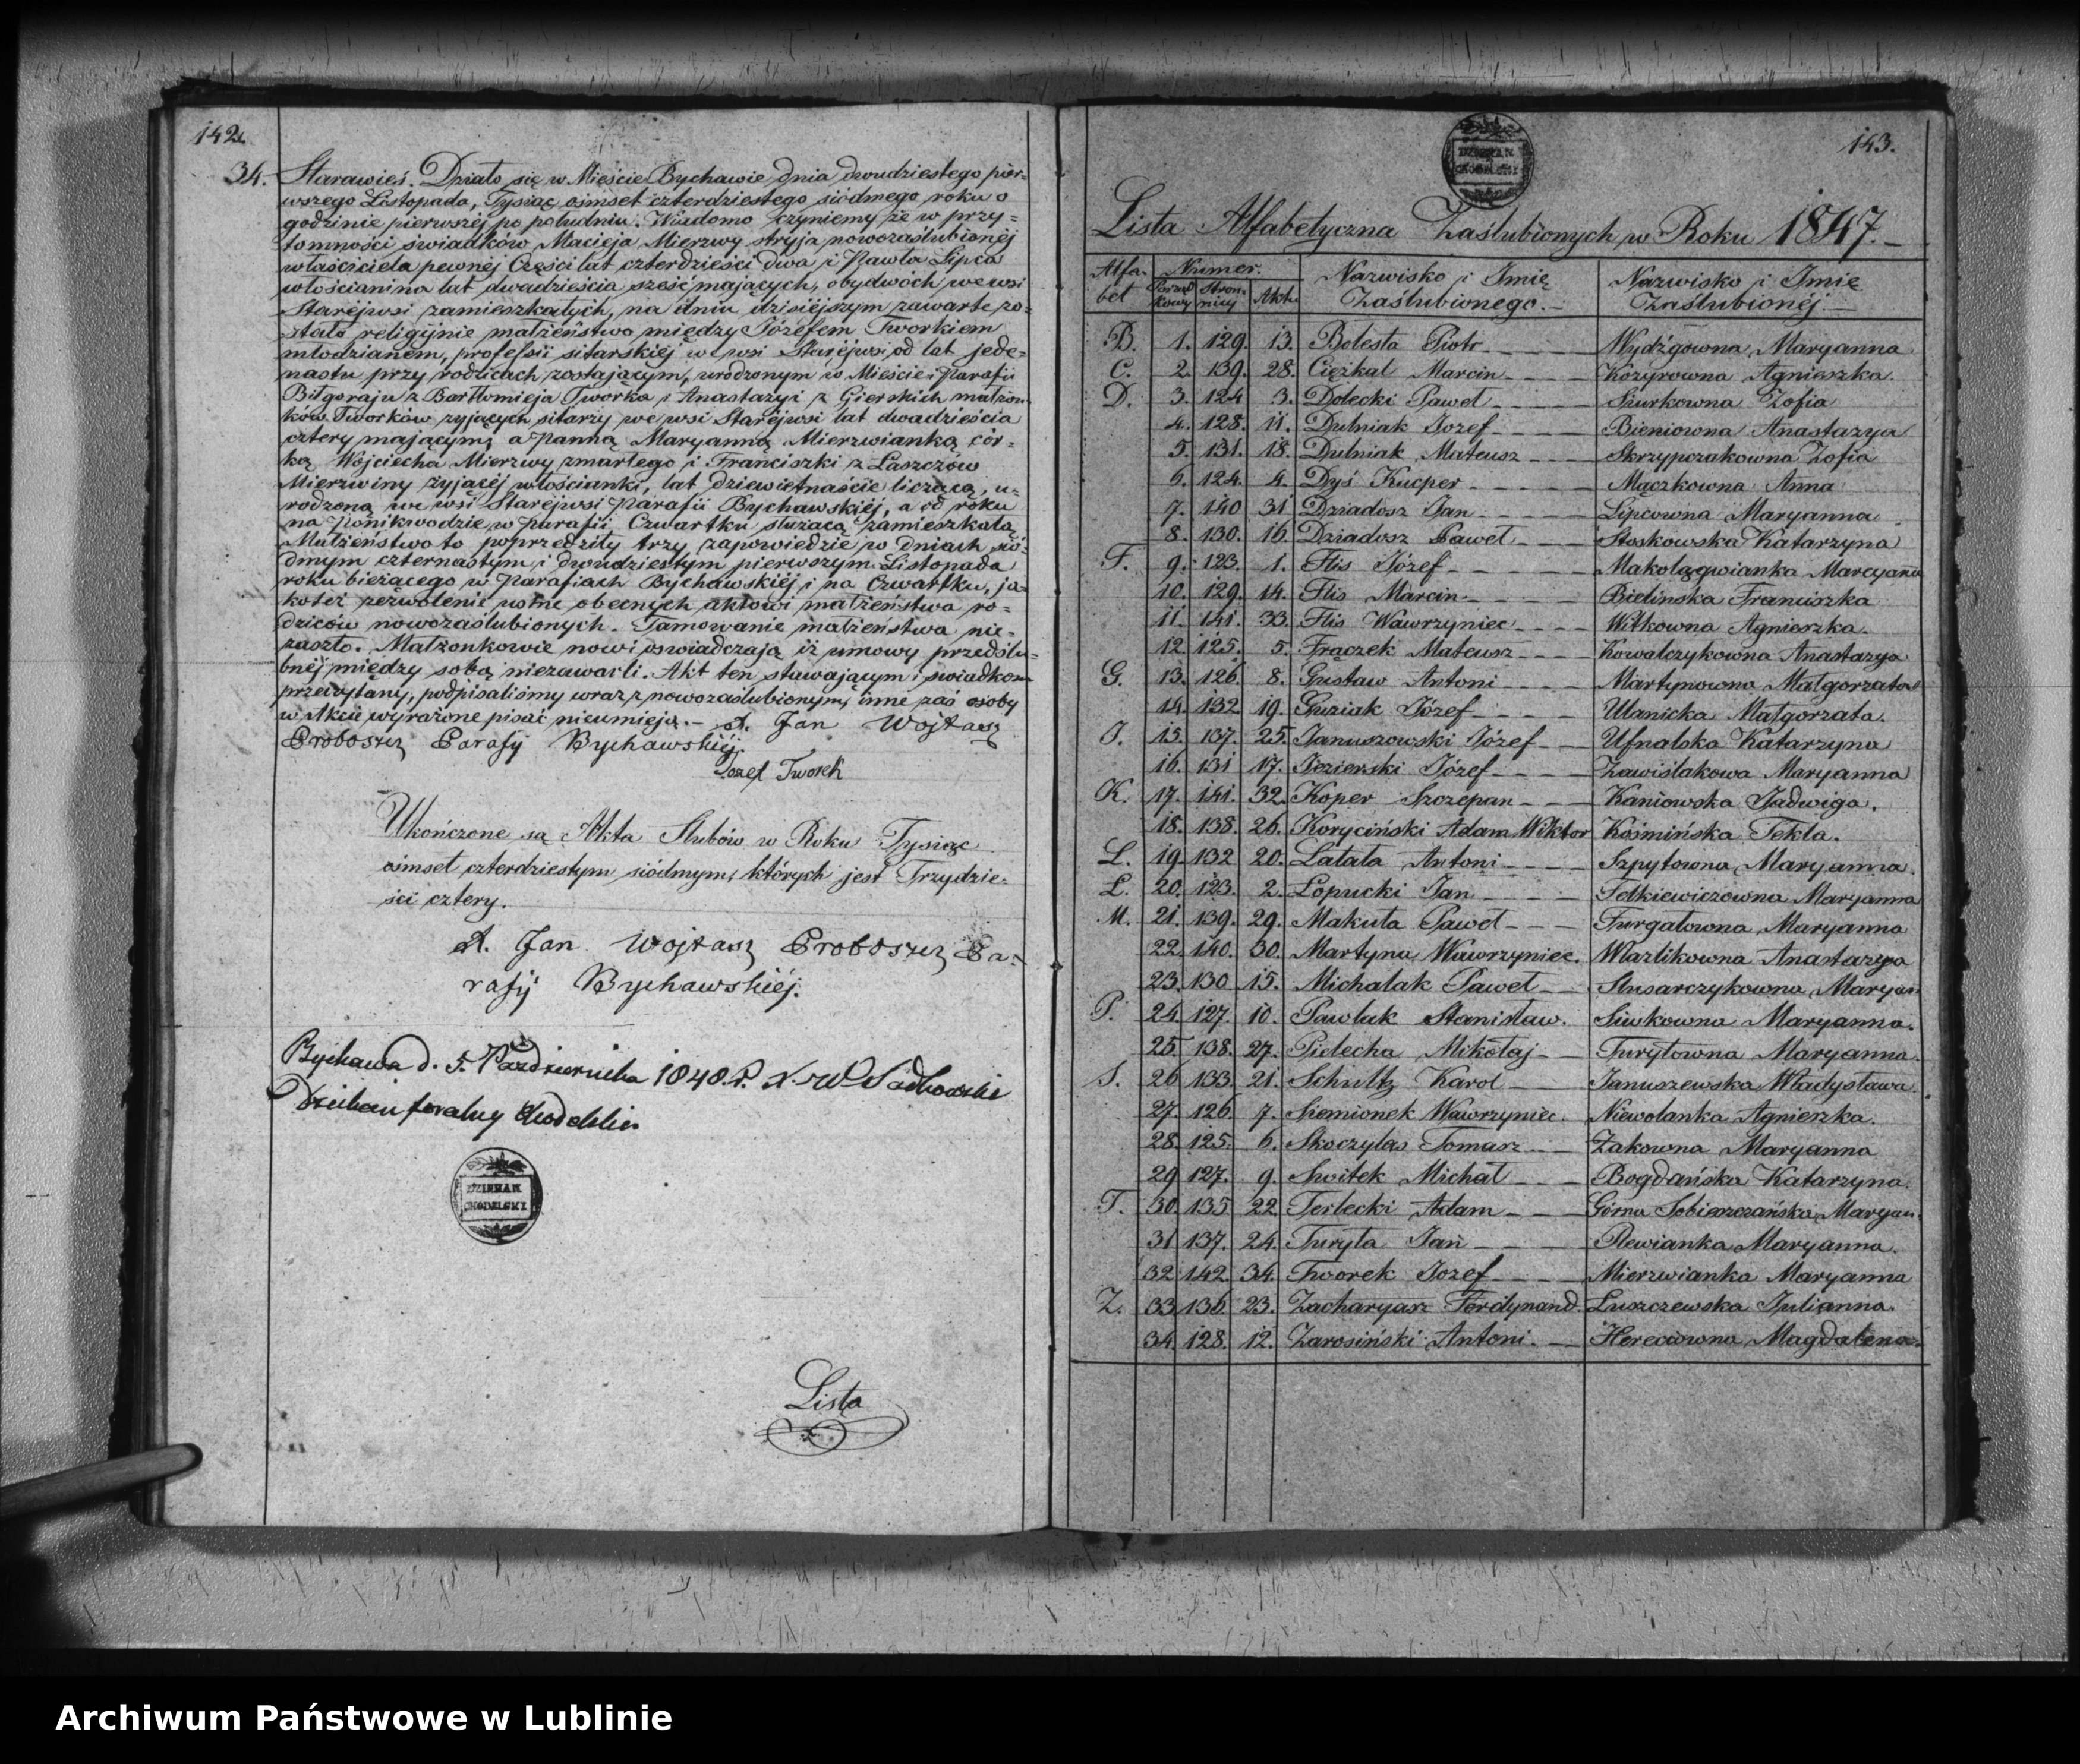 142.
34. Starawieś. Działo się w Mieście Bychawie dnia dwudziestego pier-
wszego Listopada, Tysiąc ośmset czterdziestego siódmego roku o
godzinie pierwszéj po południu. Wiadomo czyniemy że w przy-
tomności świadków Macieja Mierzwy stryja nowozaślubionéj
właściciela pewnéj Części lat czterdzieści dwa i Pawła Lipca
włościanina lat dwadzieścia sześć mających, obydwóch we wsi
Staréjwsi zamieszkałych, na dniu dzisiéjszym zawarte zo-
stało religijnie małżeństwo między Józefem Tworkiem
młodzianem, professii sitarskiéj we wsi Staréjwsi od lat jede-
nastu przy rodzicach zostającym, urodzonym w Mieście i Parafii
Biłgoraju z Bartłomieja Tworka i Anastazyi z Gierskich małżon-
ków Tworków żyjących sitarzy we wsi Staréjwsi lat dwadzieścia
cztery mającym; a Panną Maryanną Mierzwianką cór-
ką Wojciecha Mierzwy zmarłego i Franciszki z Laszczów
Mierzwiny żyjącéj włościanki, lat dziewiętnaście liczącą, u-
rodzoną we wsi Staréjwsi Parafii Bychawskiéj, a od roku
na Ponikwodzie w Parafii Czwartku służącą zamieszkałą
Małżeństwo to poprzedziły trzy zapowiedzie w dniach siό-
dmym czternastym i dwudziestym pierwszym Listopada
roku bieżącego w Parafiach Bychawskiéj i na Czwartku, ja-
koteż zezwolenie ustne obecnych aktowi małżeństwa ro-
dziców nowozaślubionych. Tamowanie małżeństwa nie-
zaszło. Małżonkowie nowi oswiadczają iż umowy przedślu-
bnéj między sobą niezawarli. Akt ten stawającym i świadkom
przeczytany, podpisaliśmy wraz z nowozaślubionym, inne zaś osoby
w Akcie wyrażone pisać nieumieją. - X. Jan Wojtasz
Proboszcz Parafij Bychawskiéj.
Jozef Tworek
Ukończone są Akta Slubów w Roku Tysiąc
ośmset czterdziestym siódmym, których jest Trzydzie-
ści cztery.
X. Jan Wojtasz Proboszcz Pa-
rafij Bychawskiéj.
Bychawa d. 5. Października 1848. r. X. W Sadkowski
Dziekan foralny Chodelski
DZIEKAN
CHODELSKI
Lista
143.
DZIEKAN
CHODELSKI
Lista Alfabetyczna Zaślubionych w Roku 1847.-
Alfa- Numer. Nazwisko i Imię Nazwisko i Imie
bet Porząd kowy Stron- nicy Aktu Zaślubionego. Zaślubionéj.
B. 1. 129. 13. Bolesta Piotr Wydźgowna Maryanna
C. 2. 139. 28. Ciężkal Marcin Kozyrowna Agnieszka.
D. 3. 124 3. Dolecki Paweł Szurkowna Zofia
4. 128. 11. Dulniak Jozef Bieniowna Anastazya
5. 131. 18. Dulniak Mateusz Skrzypczakowna Zofia
6. 124. 4. Dyś Kacper Mączkowna Anna
7. 140 31 Dziadosz Jan Lipcowna Maryanna
8. 130. 16. Dziadosz Paweł Stoskowska Katarzyna
F. 9. 123. 1. Flis Józef Makolągwianka Maryanna
10. 129. 14. Flis Marcin Bielinska Franciszka
11. 141. 33. Flis Wawrzyniec Witkowna Agnieszka.
12 125. 5. Frączek Mateusz Kowalczykowna Anastazya
G. 13. 126. 8. Gustaw Antoni Martynowna Małgorzata
14. 132. 19. Guziak Józef Ulanicka Małgorzata.
J. 15. 137. 25. Januszowski Józef Ufnalska Katarzyna
16. 131 17. Jezierski Józef Zawiślakowa Maryanna
K. 17. 141. 32. Koper Szczepan Kaniowska Jadwiga.
18. 138. 26. Koryciński Adam Wiktor Kośmińska Tekla.
L. 19. 132 20. Latała Antoni Szpytowna Maryanna.
Ł. 20. 123. 2. Łopucki Jan Felkiewiczowna Maryanna
M. 21. 139. 29. Makuła Paweł Furgałowna Maryanna
22. 140. 30. Martyna Wawrzyniec. Wazlikowna Anastazya
23. 130 15. Michalak Paweł Slusarczykowna Maryan
P. 24. 127. 10. Pawluk Stanisław. Siwkowna Maryanna.
25. 138. 27. Pielecha Mikołaj Turyłowna Maryanna.
S. 26 133. 21. Schultz Karol Januszewska Władysława.
27. 126. 7. Siemionek Wawrzyniec. Niewolanka Agnieszka.
28. 125. 6. Skoczylas Tomasz Zakowna Maryanna
29 127. 9. Switek Michał Bogdańska Katarzyna.
T. 30. 135 22 Terlecki Adam Górna Sobieszczańska Maryan.
31 137. 24. Turyła Jan Plewianka Maryanna.
32 142. 34. Tworek Jozef Mierzwianka Maryanna
Z. 33 136 23. Zacharyasz Ferdynand. Luszczewska Julianna.
34. 128. 12. Zarosiński Antoni. Herecowna Magdalena.
Archiwum Państwowe w Lublinie